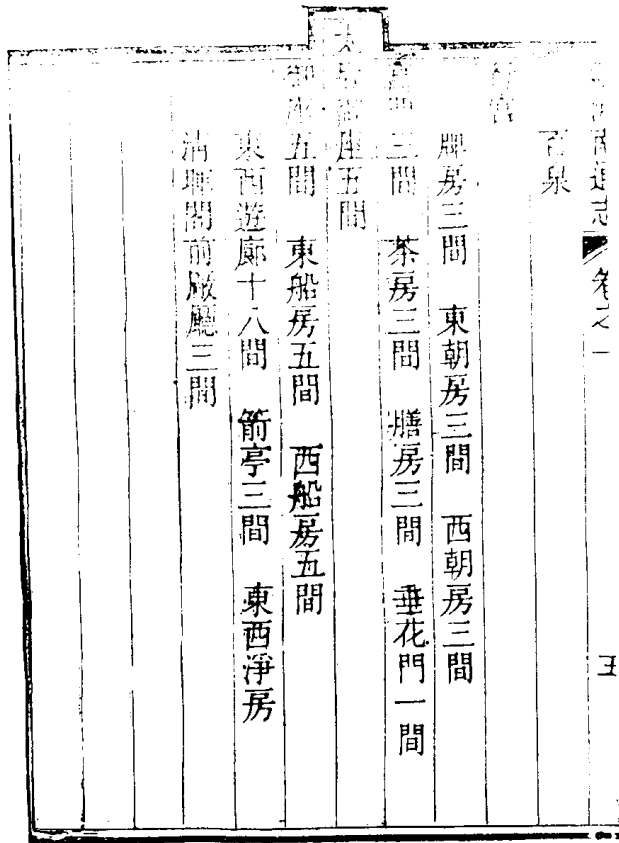 河南通志 卷之一 五
百泉
行宮
牌房三間 東朝房三間 西朝房三間
宮門三間 茶房三間 膳房三間 垂花門一間
太后御座五間
御座五間 東船房五間 西船房五間
東西遊廊十八間 箭亭三間 東西淨房
清暉閣前廠廳三間